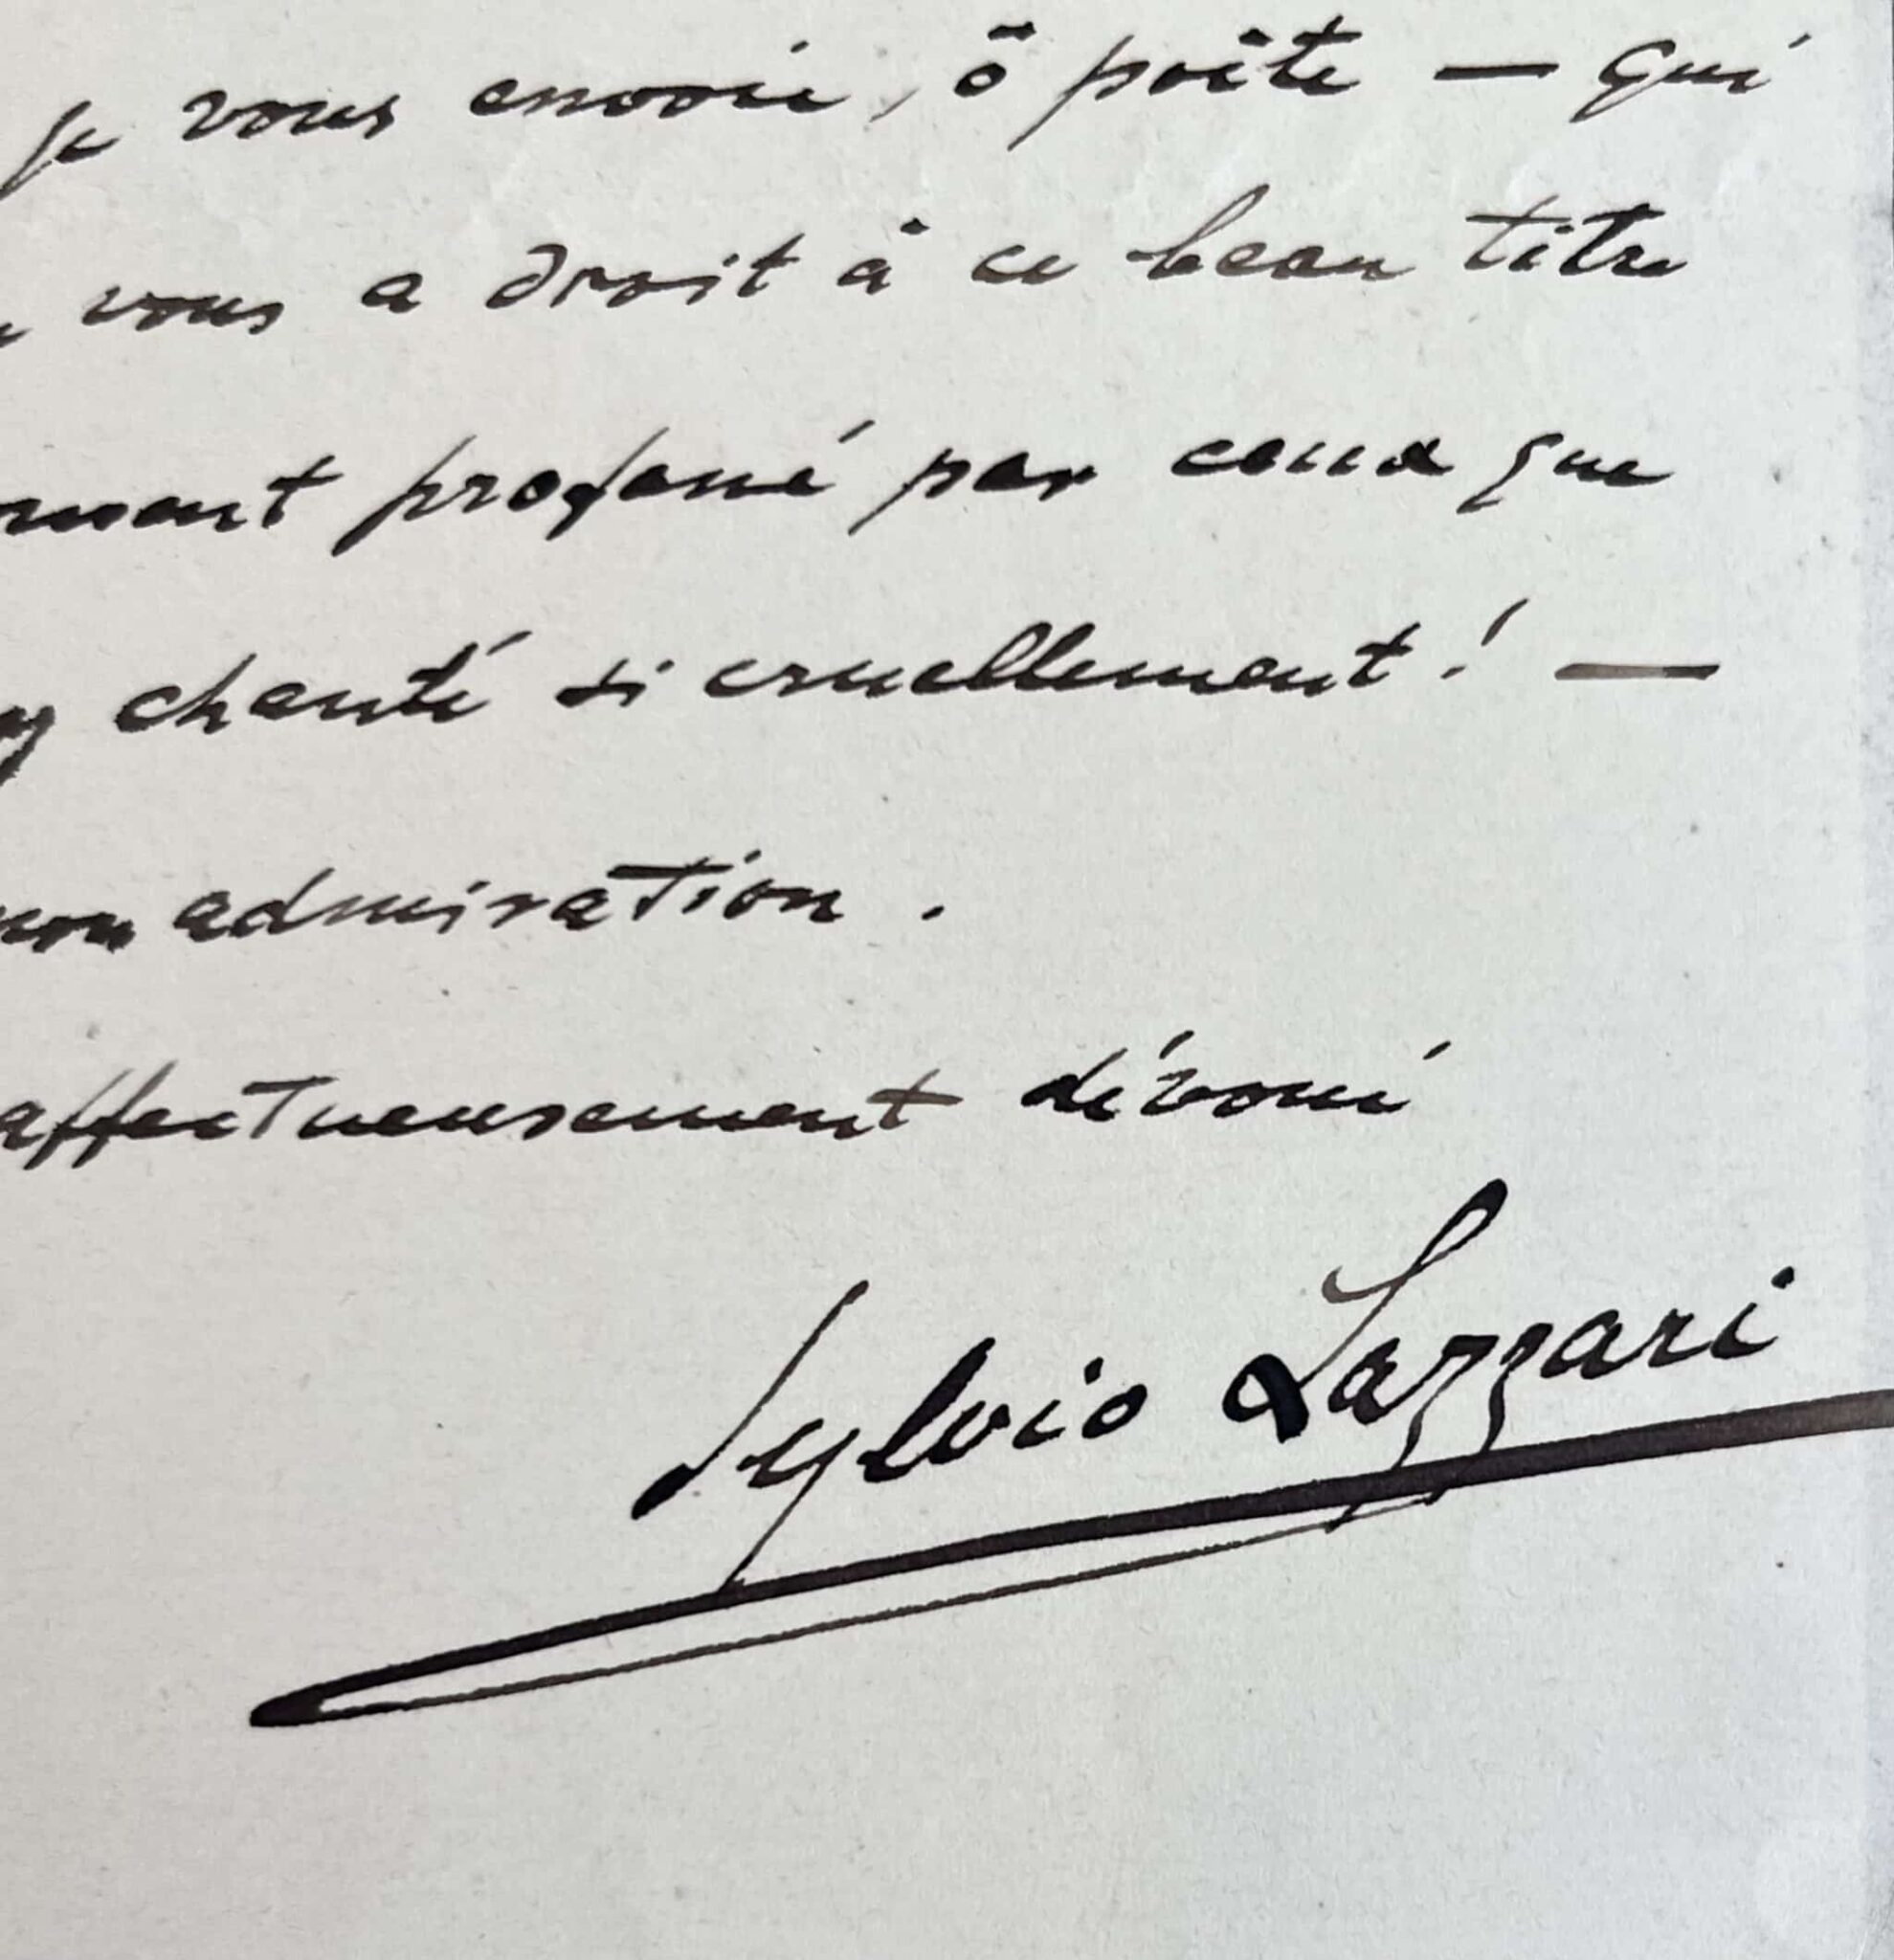 je vous envoie, ô poëte — qui
vous a droit à ce beau titre
profané par ceux que
chanté si cruellement! —
mon admiration.
affectueusement dévoué
Sylvio Lazzari